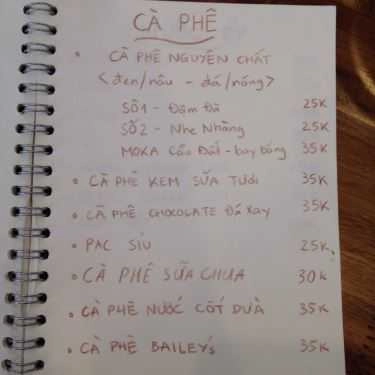 CÀ PHÊ
• CÀ PHÊ NGUYÊN CHẤT
<đen/nâu - đá/nóng>
SỐ 1 - Đậm Đà 25K
SỐ 2 - Nhẹ Nhàng 25K
MOKA Cầu Đất - bay bổng 35K
• CÀ PHÊ KEM SỮA TƯƠI 35K
• CÀ PHÊ CHOCOLATE Đá Xay 35K
• PẠC SỈU 25K
• CÀ PHÊ SỮA CHUA 30K
• CÀ PHÊ NƯỚC CỐT DỪA 35K
• CÀ PHÊ BAILEY's 35K